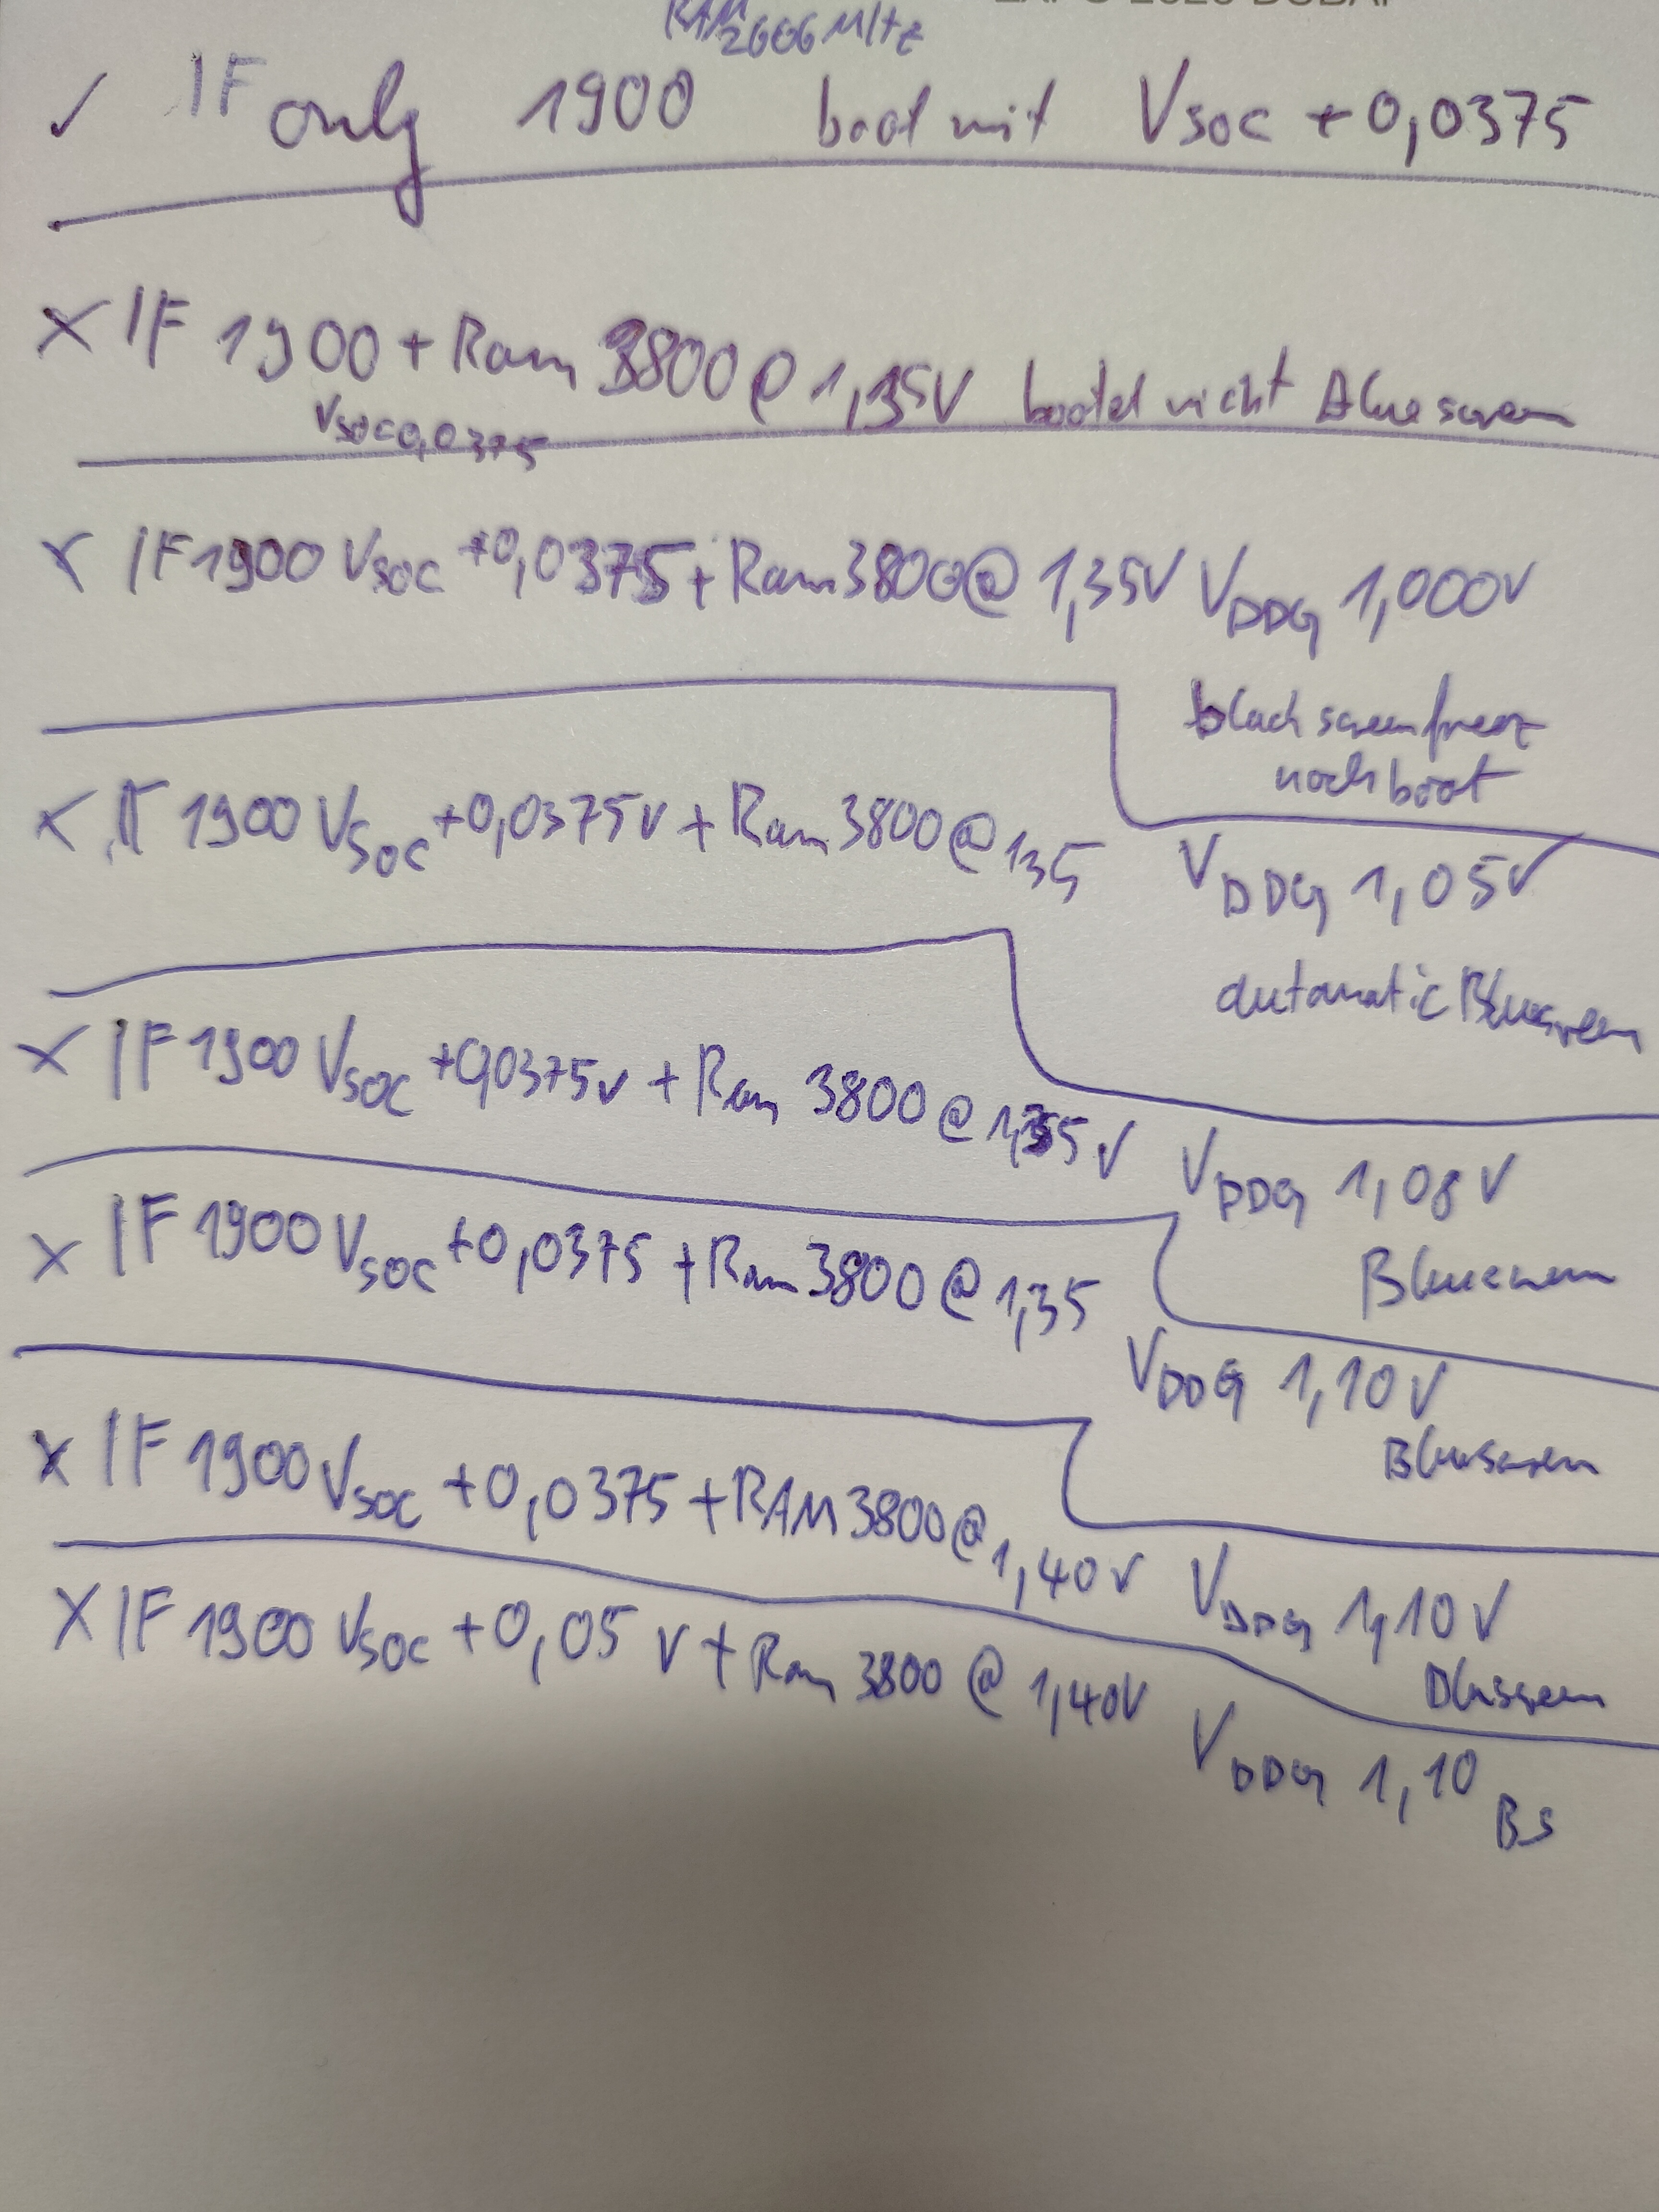 EXPO 2020 DUBAI
RAM 2666 MHz
✓ IF only 1900 boot mit Vsoc +0,0375
x IF 1900 + Ram 3800 @ 1,35V bootet nicht Bluescreen
Vsoc 0,0375
x IF 1900 Vsoc +0,0375 + Ram 3800 @ 1,35V VDDG 1,000V
black screen freez
noch boot
x IF 1900 Vsoc +0,0375V + Ram 3800 @ 135
VDDG 1,05V
automatic Bluescreen
x IF 1900 Vsoc +0,0375V + Ram 3800 @ 1,35V
VDDG 1,08V
Bluescreen
x IF 1900 Vsoc +0,0375 + Ram 3800 @ 1,35
VDDG 1,10V
Bluescreen
x IF 1900 Vsoc +0,0375 + RAM 3800 @ 1,40V
VDDG 1,10V
Bluescreen
x IF 1900 Vsoc +0,05 V + Ram 3800 @ 1,40V
VDDG 1,10
BS